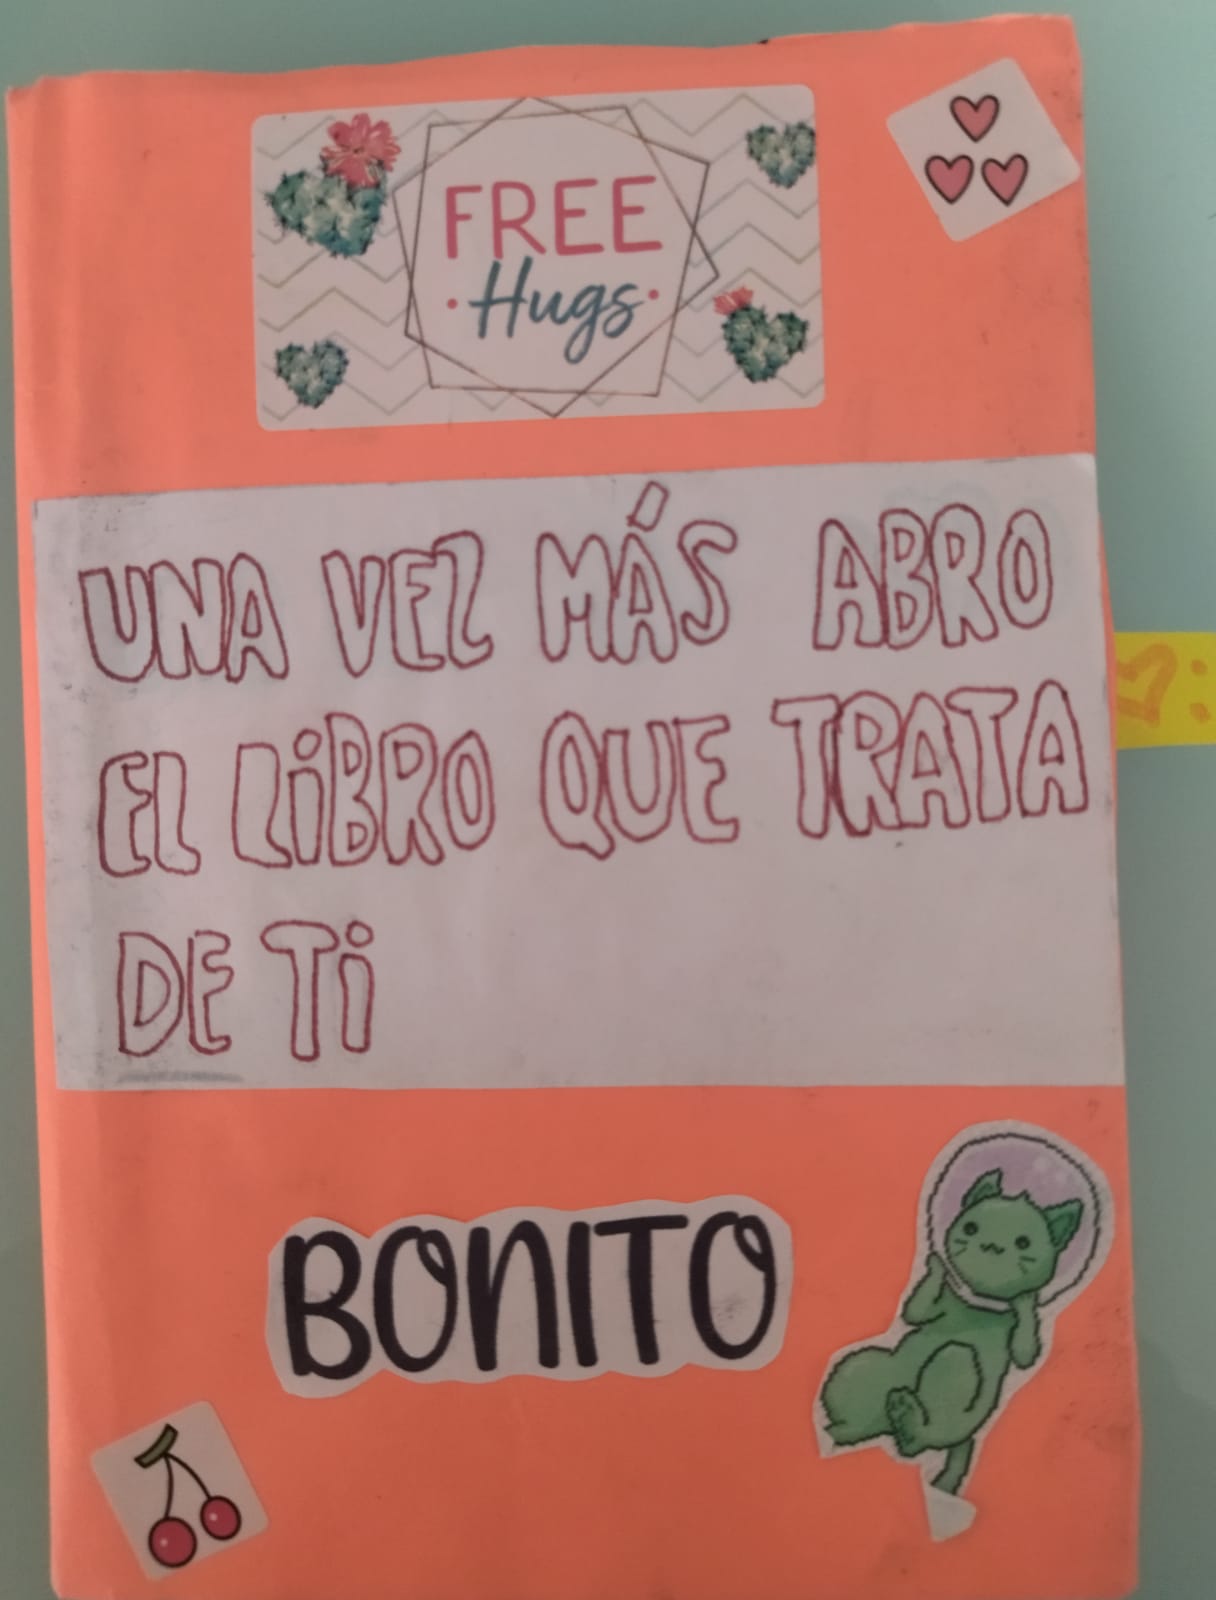 FREE
Hugs
UNA VEZ MÁS ABRO
EL LIBRO QUE TRATA
DE TI
BONITO